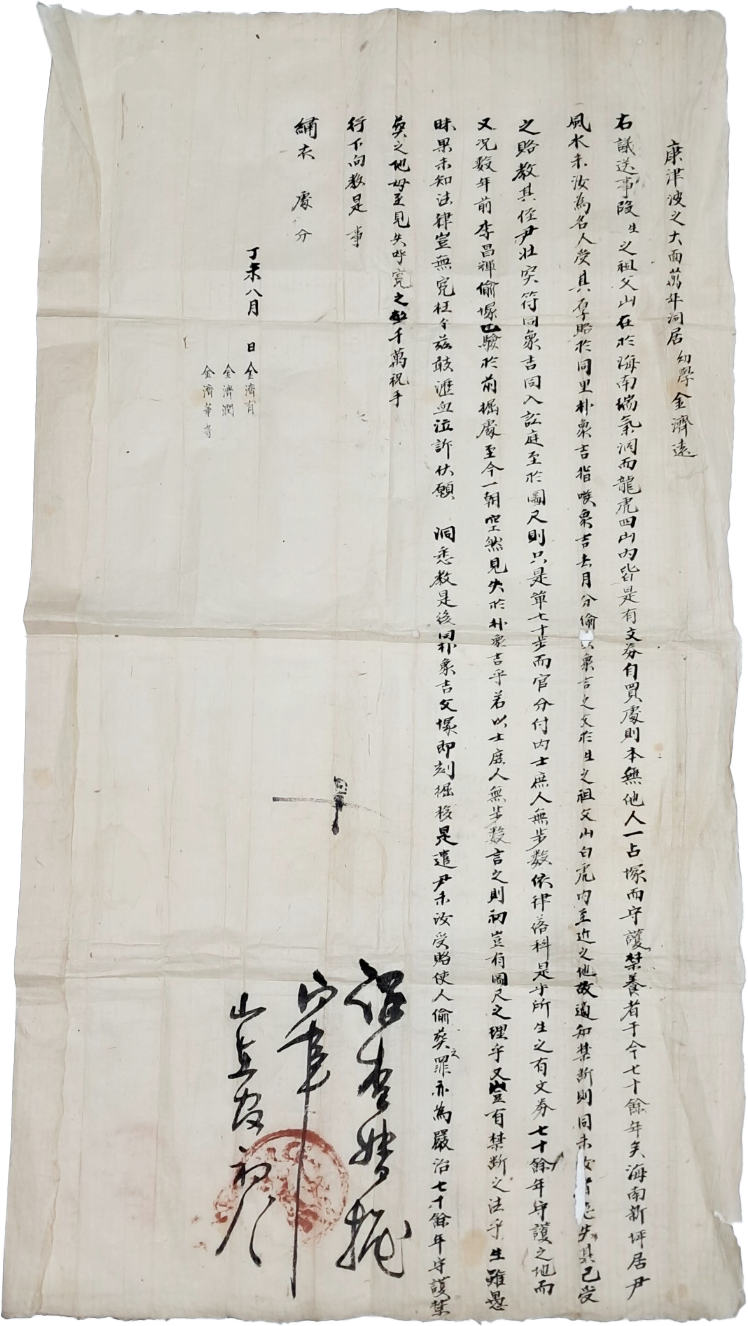 康津波之大面萬年洞居 幼學 金濟遠
右議送事段生之祖父山在於海南瑞氣洞而龍虎四山內皆是有文券自買處則本無他人一占塚而守護禁養者于今七十餘年矣海南新坪居尹
風水未汝爲名人受其厚賂於同里朴衆吉指嗾衆吉去月分偷 衆吉之父於生之祖父山白虎內至近之地故適知禁斷則同未汝 其已受
之賂教其侄尹壯突符同衆吉同入訟庭至於圖尺則只是第七十步而官分付內士庶人無步數依律落科是乎所生之有文券七十餘年守護之地而
又況數年前李昌輝偷塚已驗於前掘處至今一朝空然見失於朴衆吉乎若以士庶人無步數言之則初豈有圖尺之理乎又豈有禁斷之法乎生雖愚
昧果未知法律豈無冤枉乎玆敢瀝血泣訴伏願 洞悉教是後同朴衆吉父塚即刻掘移是遣尹未汝受賂使人偷葬之罪亦爲嚴治七十餘年守護禁
養之地毋至見失呼冤之 千萬祝手
行下向教是 事
繡衣 處分
丁未八月 日 金濟育
金濟潤
金濟 等